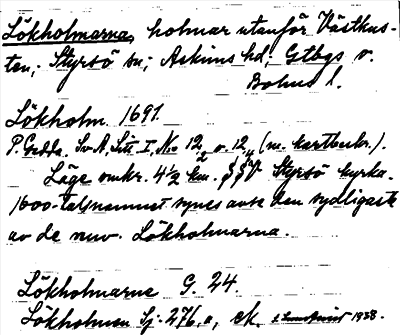 Lökholmarna, holmar utanför Västkus-
ten, Styrsö sn; Askims hd; Gtbgs o.
Bohus l.
Lökholm 1691.
P. Gedda. Sv. A, Litt. I, No 12 o. 12 (m. kartbeskr.).
Läge omkr. 4 1/2 km. SSV Styrsö kyrka.
1600-talsnamnet synes avse den sydligaste
av de nuv. Lökholmarna.
Lökholmarne G. 24.
Lökholmen Sj. 276, ek. 1938.